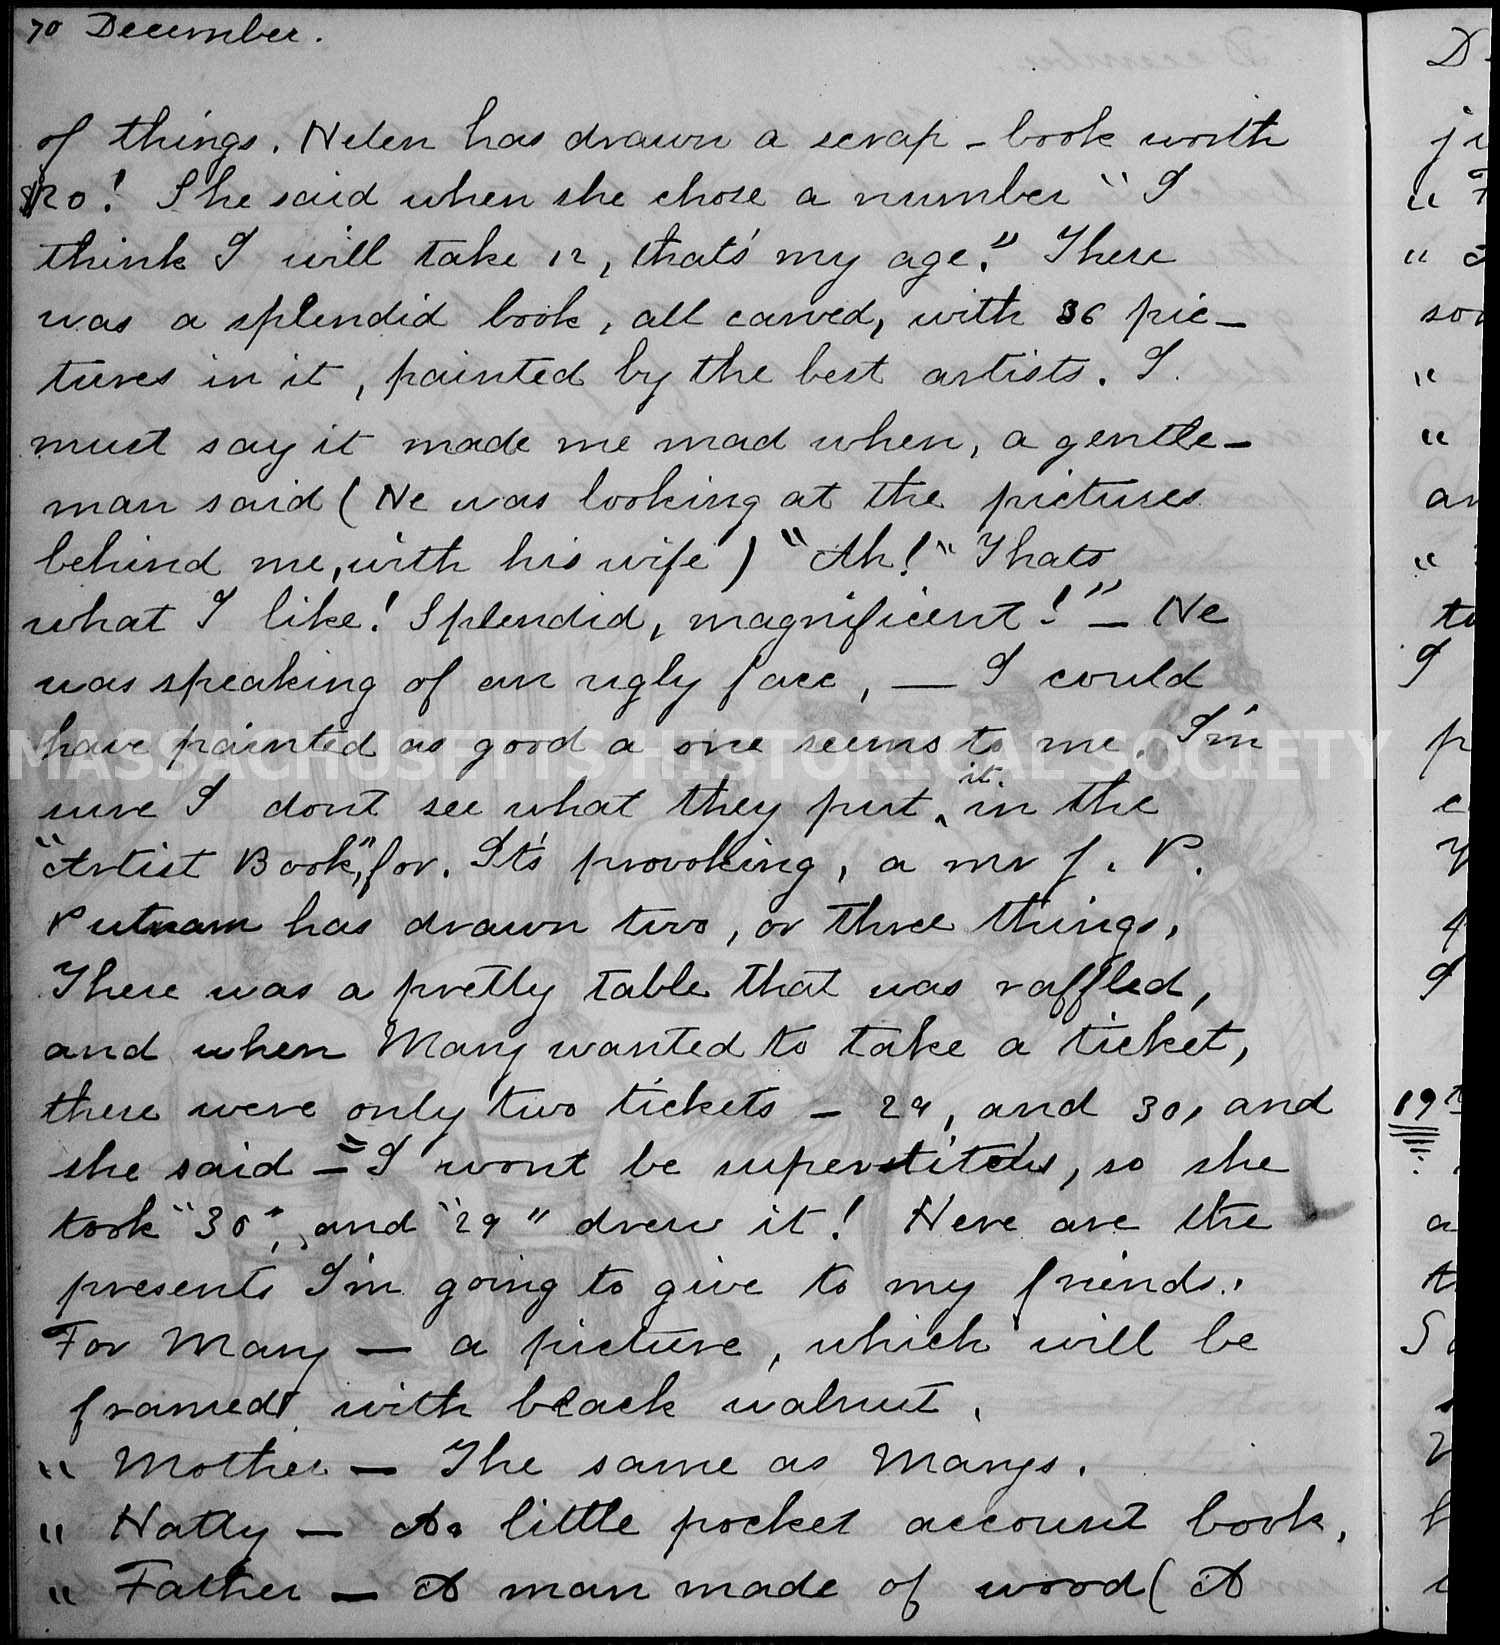 70 December.
of things. Helen has drawn a scrap-book worth
$20! She said when she chose a number "I
think I will take 12, that's my age." There
was a splendid book, all carved, with 36 pic-
tures in it, painted by the best artists. I
must say it made me mad when, a gentle-
man said (He was looking at the pictures
behind me, with his wife) "Ah!" Thats
what I like! Splendid, magnificent!" — He
was speaking of an ugly face, — I could
have painted as good a one seems to me. I'm
sure I dont see what they put ‸ it in the
"Artist Book", for. It's provoking, a mr J. P.
Putnam has drawn two, or three things.
There was a pretty table that was raffled,
and when Mary wanted to take a ticket,
there were only two tickets — 29, and 30, and
she said — "I wont be superstitous, so she
took "30", and "29" drew it! Here are the
presents I'm going to give to my friends.
For Mary — a picture, which will be
framed with black walnut.
" Mother — The same as Marys.
" Hatty — A little pocket account book.
" Father — A man made of wood (A
MASSACHUSETTS HISTORICAL SOCIETY
19th